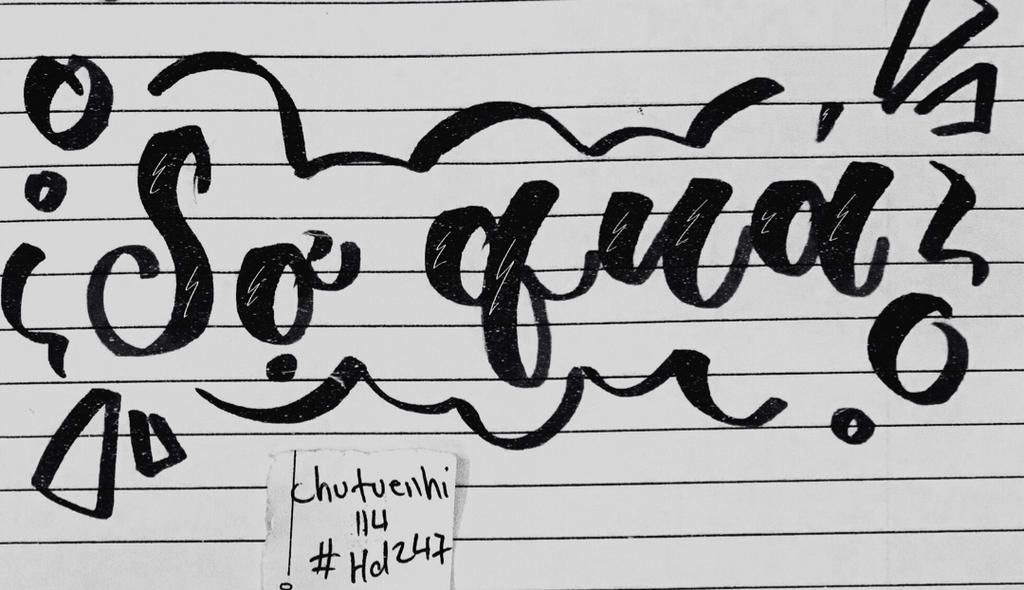 Sợ quá
chutuenhi
114
#Hd247